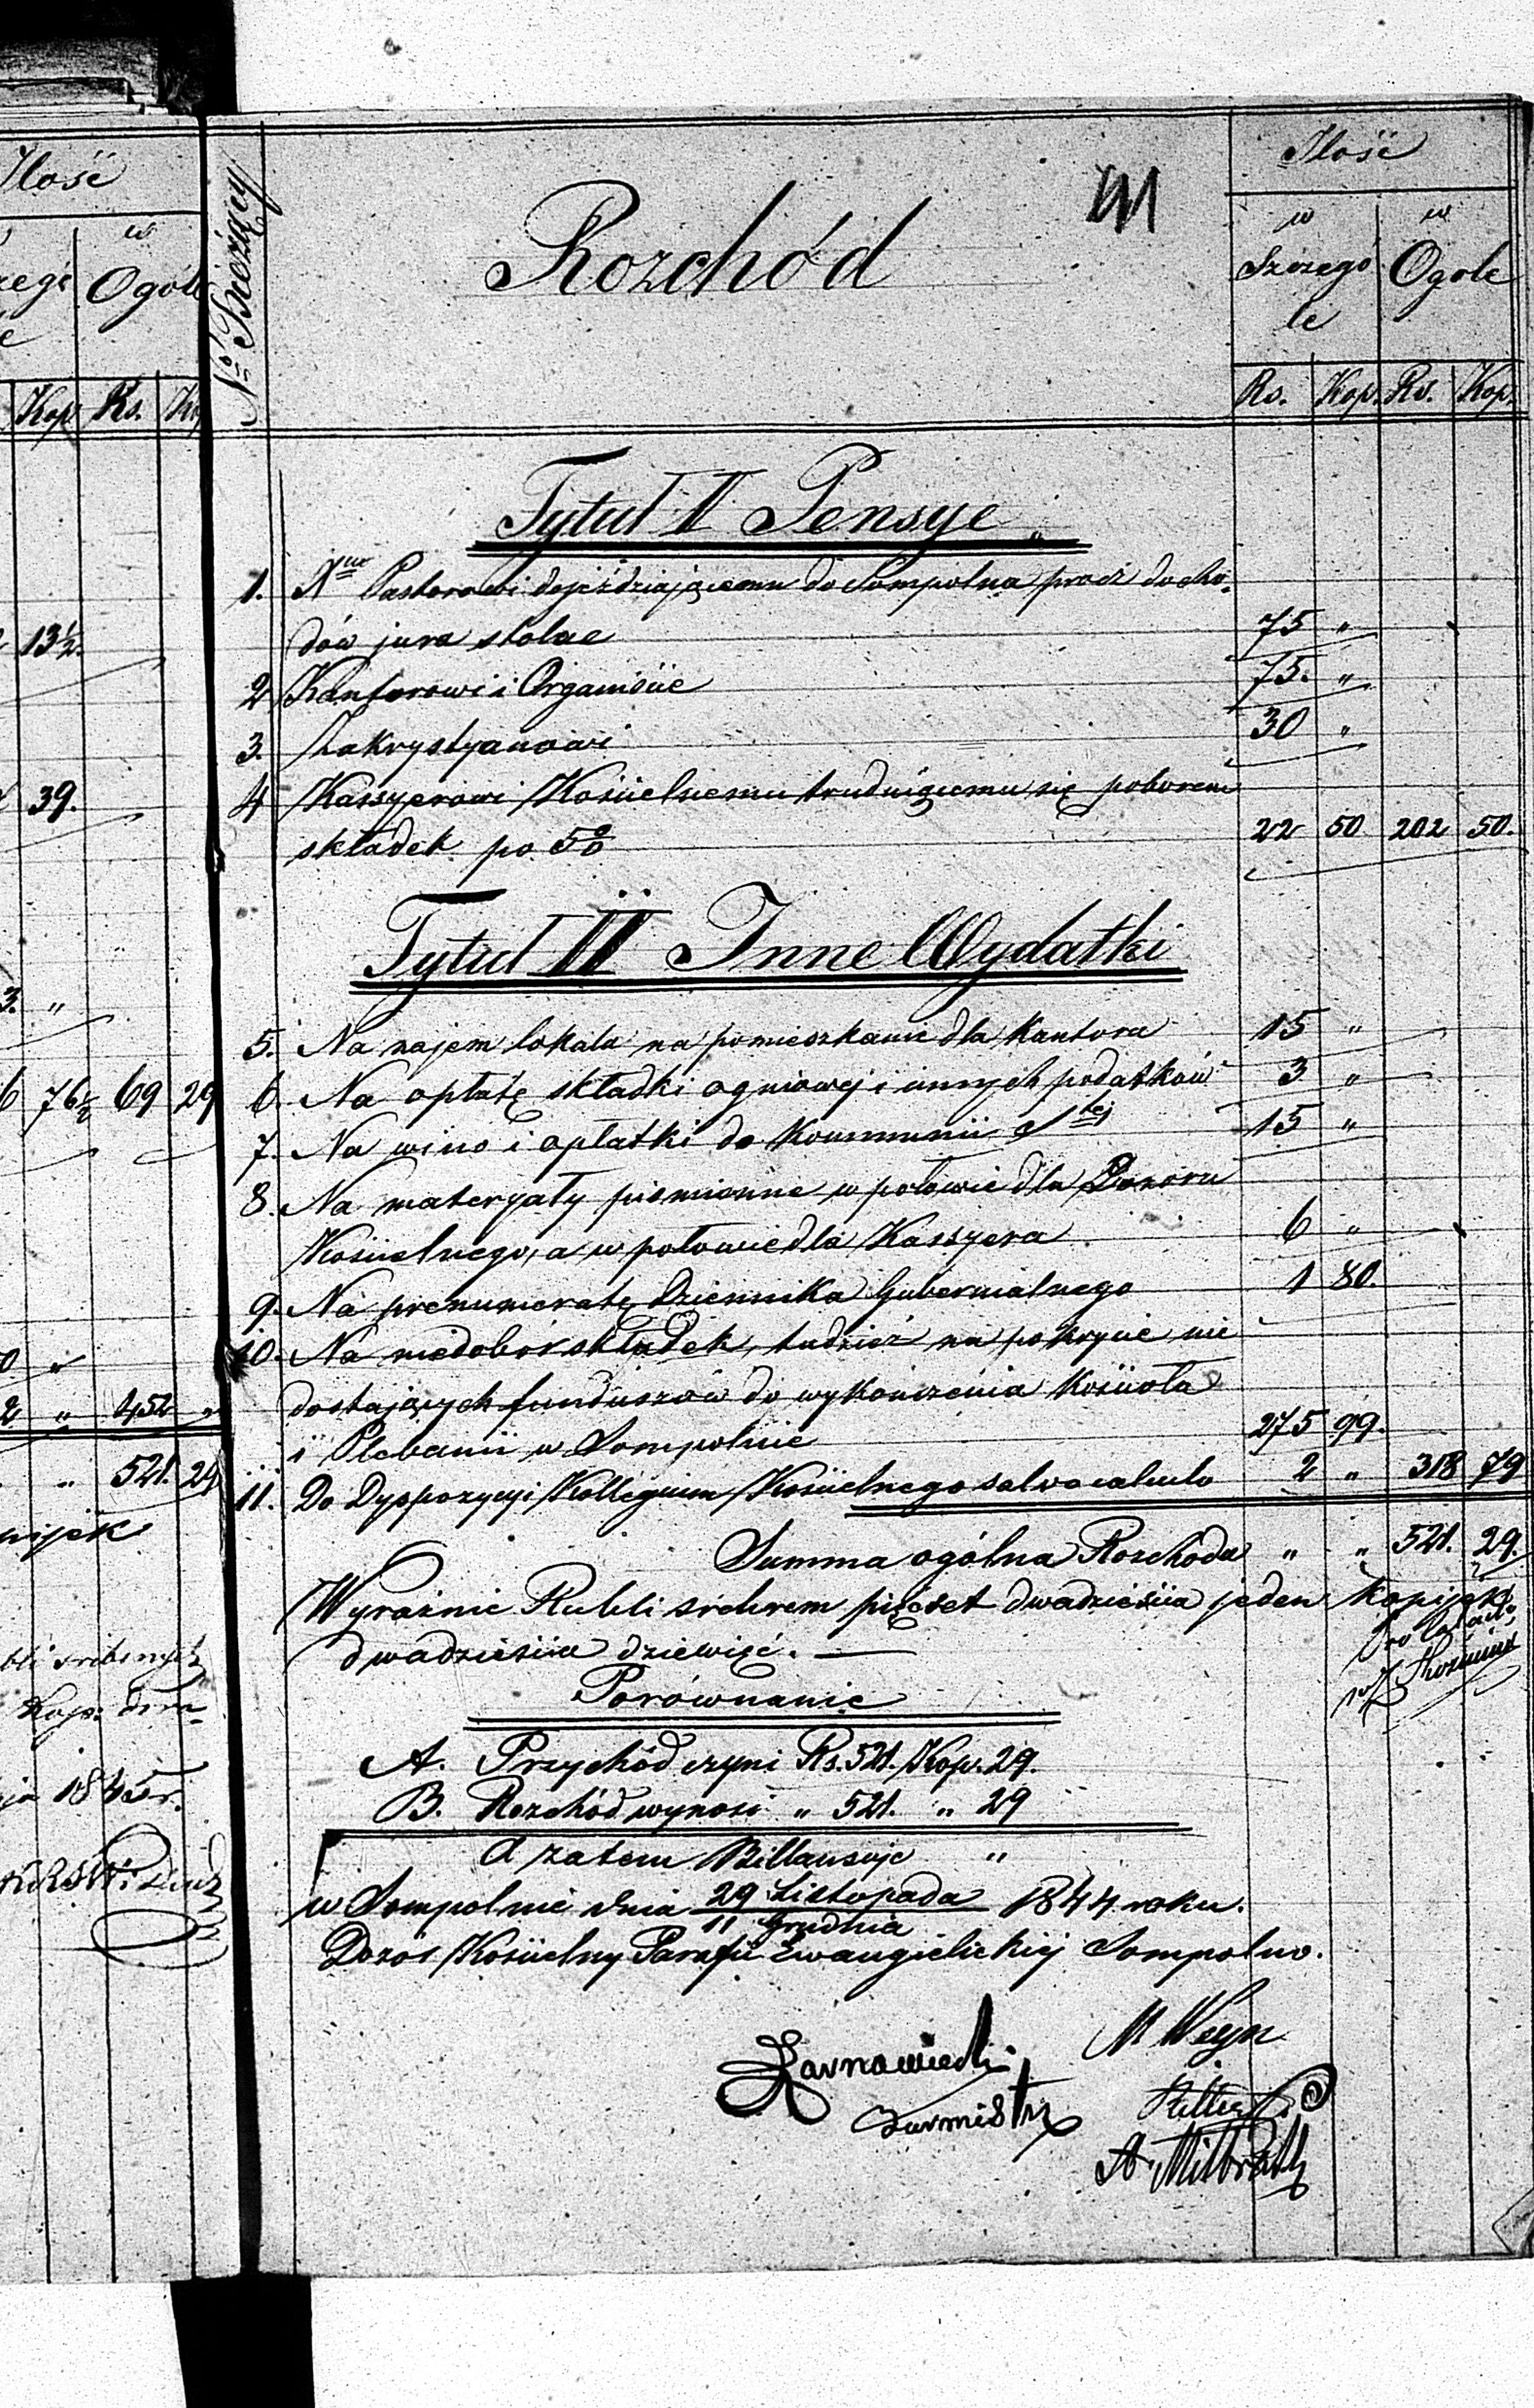 Ilość
w
Ogóle
Kop. Rs.
13½.
39.
3. "
76½ 69 29
" 452 "
" 521. 29
1845 r.
No Bieżący
Rozchód
Ilość
w w
Szczegó Ogole
le
Rs. Kop. Rs. Kop.
Tytuł I Pensye
1. Xmu Pastorowi dojeżdziającemu do Sompolna procz docho-
dów jura stolae 75 "
2 Kantorowi i Organiscie 75. "
3. Zakrystyanowi 30 "
4 Kassyerowi Kościelnemu trudniącemu się poborem
składek po 5% 22 50 202 50.
Tytuł II Inne Wydatki
5. Na najem lokalu na pomieszkanie dla Kantora 15 "
6. Na opłatę składki ogniowej i innych podatków 3 "
7. Na wino i opłatki do Kommunii Stej 15 "
8. Na materyały piśmienne w połowie dla Dozoru
Kościelnego, a w połowie dla Kassyera 6 "
9. Na prenumeratę Dziennika Gubernialnego 1 80.
10. Na niedobór składek, tudzież na pokrycie nie
dostających funduszów do wykończenia Kościoła
i Plebanii w Sompolnie 275 99.
11. Do Dyspozycyi Kollegium Kościelnego salvo calculo 2 " 318 79
Summa ogólna Rozchodu " " 521. 29.
Wyraźnie Rubli srebrem pięćset dwadzieścia jeden Kopijek
dwadzieścia dziewięć.
Porównanie
A. Przychód czyni Rs. 521. Kop. 29.
B. Rozchód wynosi " 521. " 29
A zatem Billansuje "
w Sompolnie dnia 29 Listopada 1844 roku.
11 Grudnia
Dozór Kościelny Parafii Ewangielickiej Sompolno.
M Weyn
Burmistrz
A. Milbrath